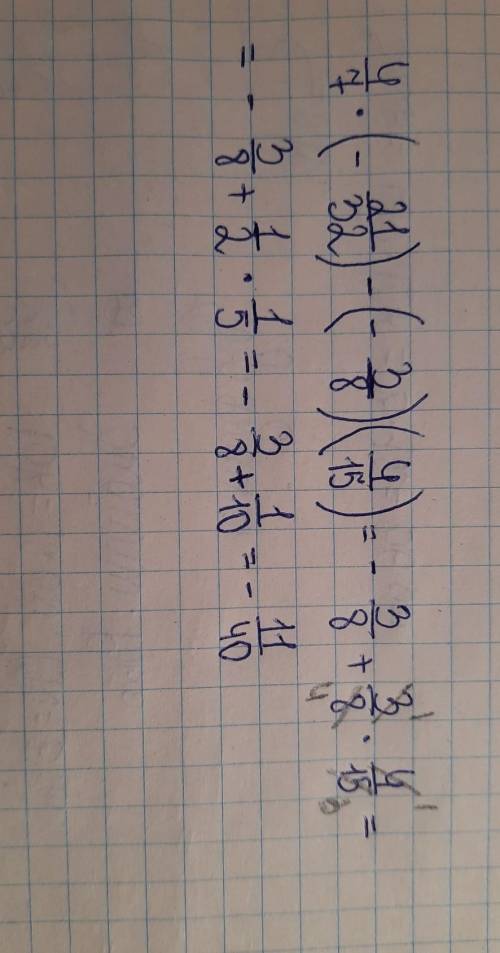 4/7 · (- 21/32) - (- 3/8)(4/15) = - 3/8 + 3/8 · 4/15 =
= - 3/8 + 1/2 · 1/5 = - 3/8 + 1/10 = - 11/40